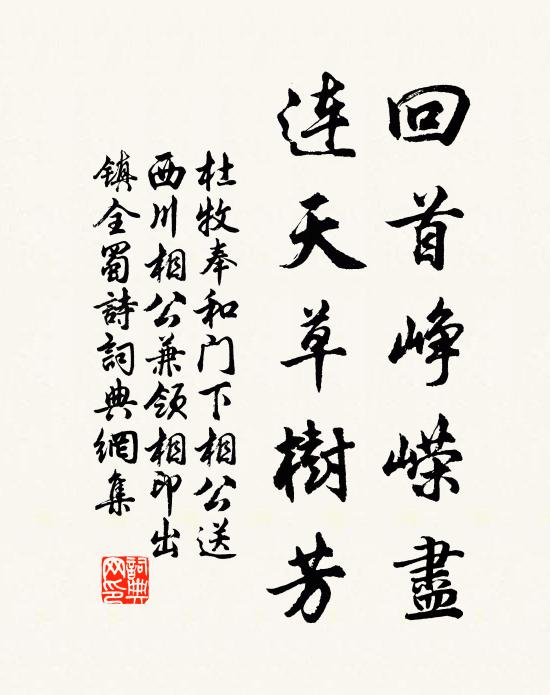 回首峥嵘盡
连天草樹芳
杜牧奉和门下相公送
西川相公兼领相印出
镇全蜀詩詞典網集
詞典网印